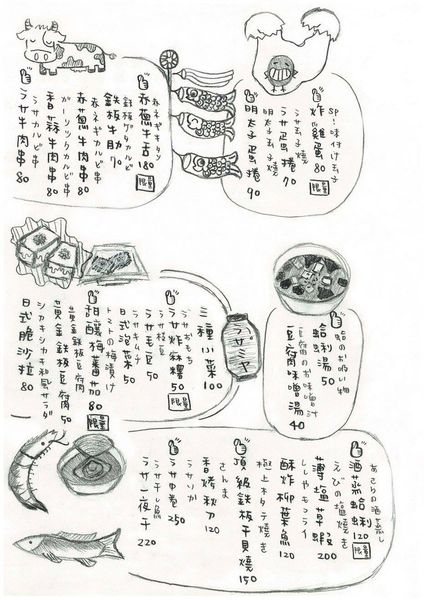 SP:味付け玉子
炸雞蛋 80
限量
ラサ玉子焼
ラサ蛋捲 70
明太子玉子焼
明太子蛋捲 90
赤ネギタン
赤蔥牛舌 180
限量
鉄板牛肋 70
赤ネギカルビ串
赤蔥牛肉串 80
ガーリックカルビ串
香蒜牛肉串 80
ラサカルビ串
ラサ牛肉串 80
蛤のお吸い物
蛤蜊湯 50
豆腐のお味噌汁
豆腐味噌湯 40
ラサミヤ
三種小菜 100
ラサおもち
ラサ炸麻糬 50
限量
ラサ枝豆
ラサ毛豆 50
ラサキムチ
日式泡菜 50
トマトの梅漬け
甜釀梅蕃茄 80
限量
黃金鉄板豆腐
黃金鉄板豆腐 50
シャキシャキ和風サラダ
日式脆沙拉 80
あさりの酒蒸し
酒蒸蛤蜊 120
限量
えびの塩焼き
薄塩草蝦 200
ししゃもフライ
酥炸柳葉魚 120
極上ホタテ焼き
頂級鉄板干貝燒 150
さんま
香烤秋刀 120
ラサイカ
ラサ中卷 250
ラサ干し魚
ラサ一夜干 220